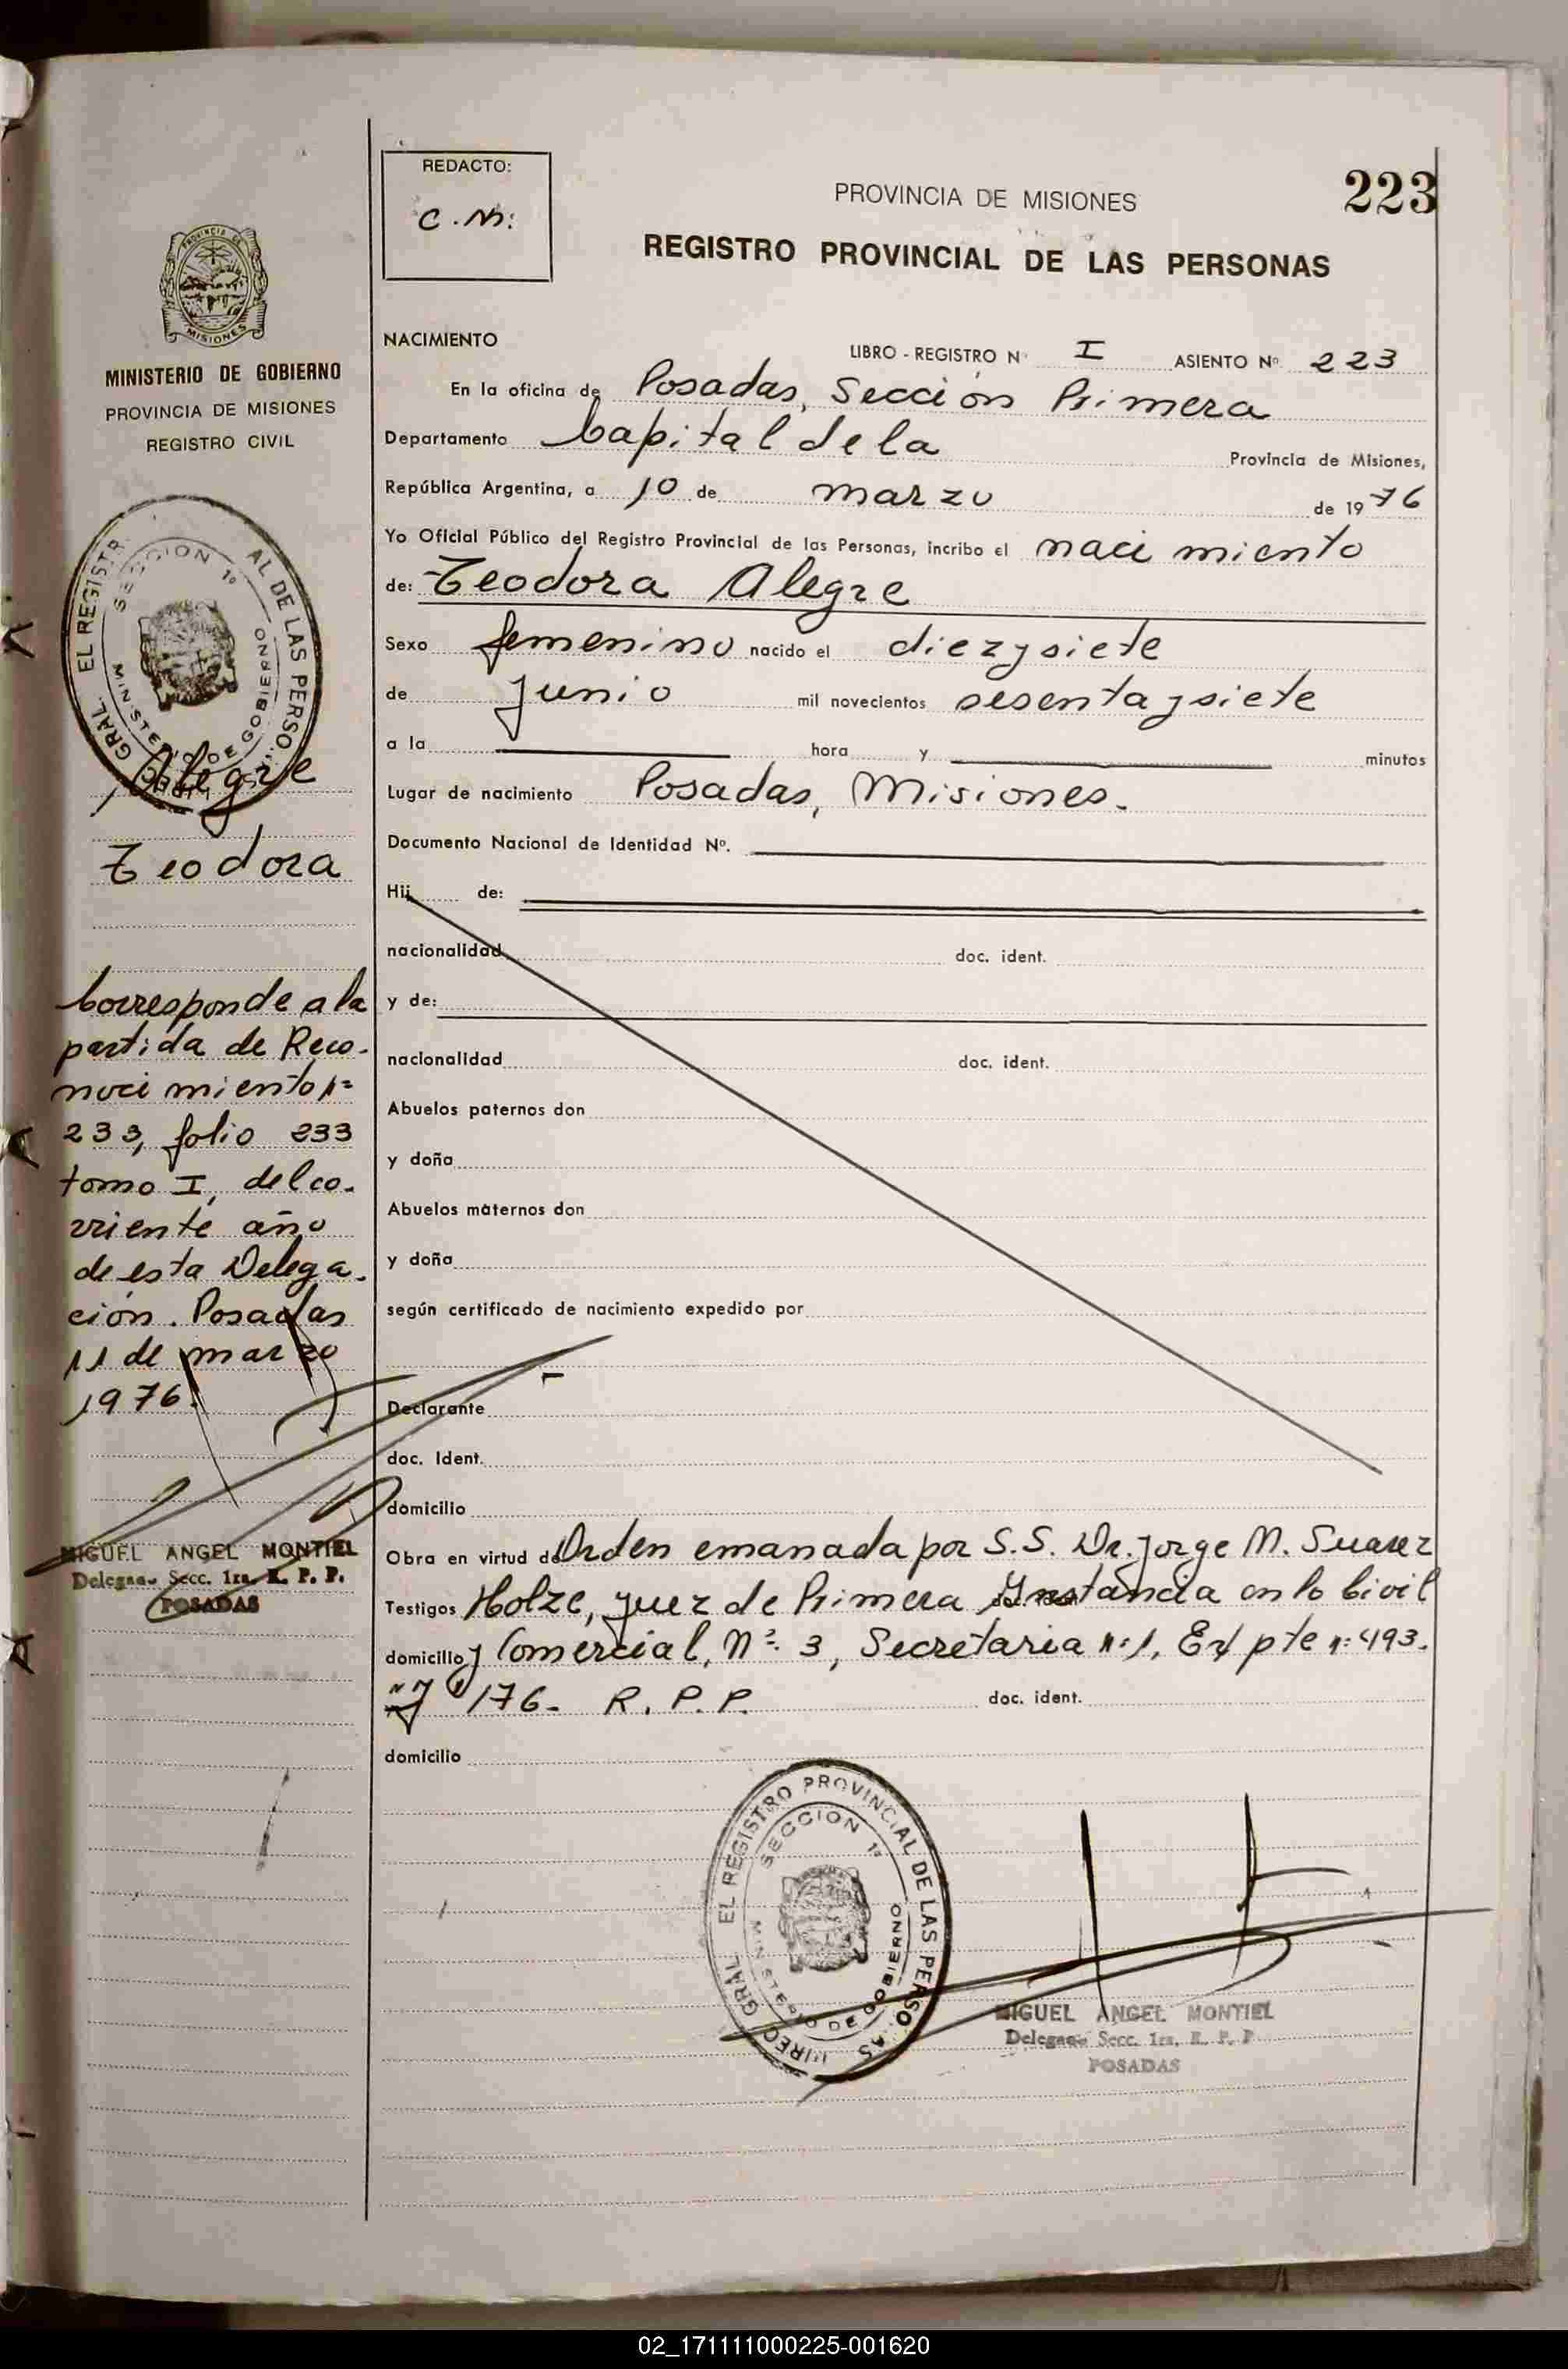 REDACTO:
C.M:
PROVINCIA DE MISIONES
223
REGISTRO PROVINCIAL DE LAS PERSONAS
PROVINCIA DE
MISIONES
MINISTERIO DE GOBIERNO
PROVINCIA DE MISIONES
REGISTRO CIVIL
EL REGISTR AL DE LAS PERSO
SECCION 1ª
MINISTERIO DE GOBIERNO
GRAL.
Alegre
Teodora
Corresponde a la
partida de Reco-
nocimiento nº
233, folio 233
tomo I, del co-
rriente año
de esta Delega-
ción. Posadas
11 de marzo
1976.
MIGUEL ANGEL MONTIEL
Delegado Secc. 1ra. R. P. P.
POSADAS
NACIMIENTO
LIBRO - REGISTRO Nº I ASIENTO Nº 223
En la oficina de Posadas, Sección Primera
Departamento Capital de la Provincia de Misiones,
República Argentina, a 10 de marzo de 1976
Yo Oficial Público del Registro Provincial de las Personas, incribo el nacimiento
de: Teodora Alegre
Sexo femenino nacido el diezysiete
de junio mil novecientos sesentaysiete
a la hora y minutos
Lugar de nacimiento Posadas, Misiones.
Documento Nacional de Identidad Nº.
Hij de:
nacionalidad doc. ident.
y de:
nacionalidad doc. ident.
Abuelos paternos don
y doña
Abuelos maternos don
y doña
según certificado de nacimiento expedido por
Declarante
doc. Ident.
domicilio
Obra en virtud de Orden emanada por S.S. Dr. Jorge M. Suarez
Testigos Holze, juez de Primera Instancia en lo Civil
domicilio y Comercial, Nº 3, Secretaria nº 1, Expte nº 493.
176- R. P. P. doc. ident.
domicilio
EL REGISTRO PROVINCIAL DE LAS PERSO AS
SECCION 1ª
MINISTERIO DE GOBIERNO
DIREC GRAL
MIGUEL ANGEL MONTIEL
Delegado Secc. 1ra. R. P. P
POSADAS
02_171111000225-001620